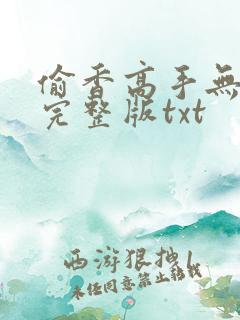 偷香高手無
完整版txt
西游狠拽
未经同意禁止转载